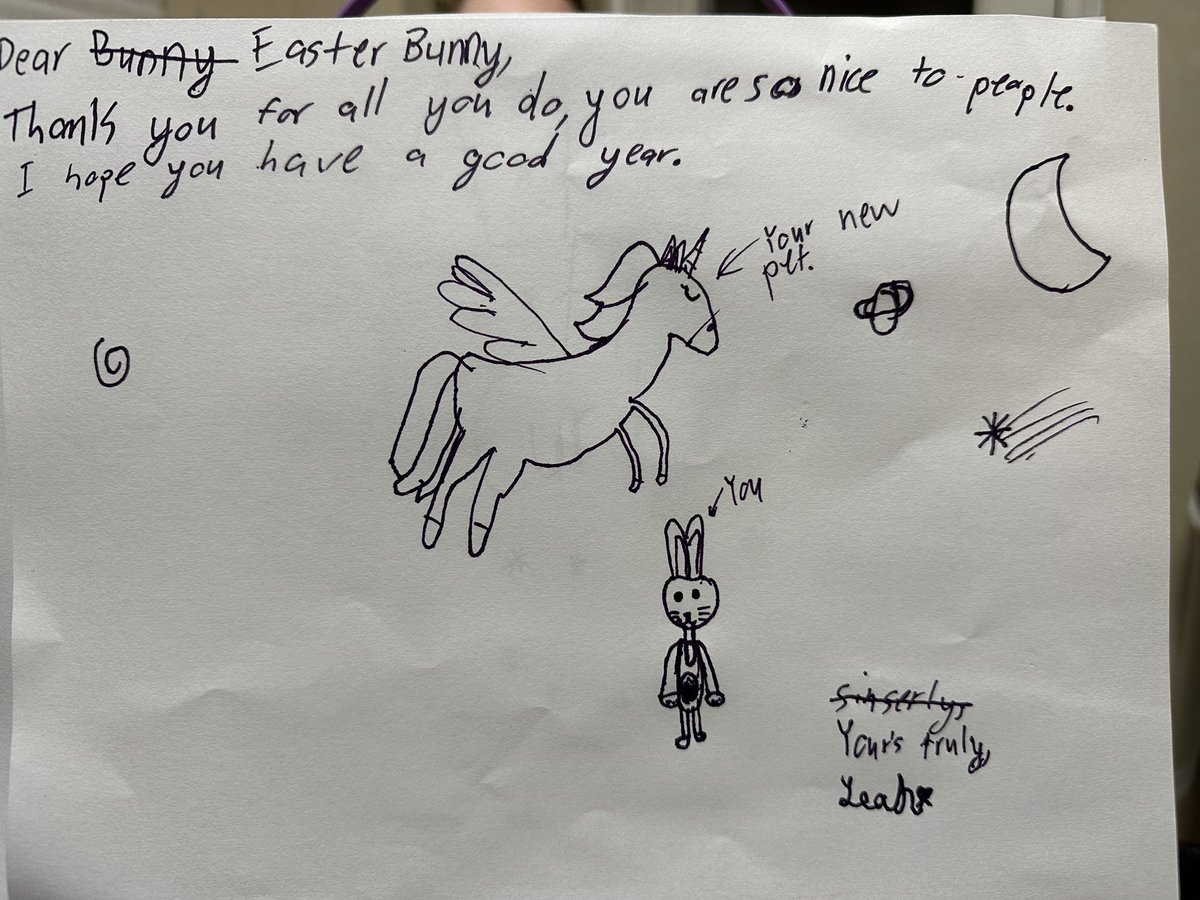 Dear Bunny Easter Bunny,
Thank you for all you do, you are so nice to people.
I hope you have a good year.
Your new
pet.
You
sinserly,
Your's truly,
Leah